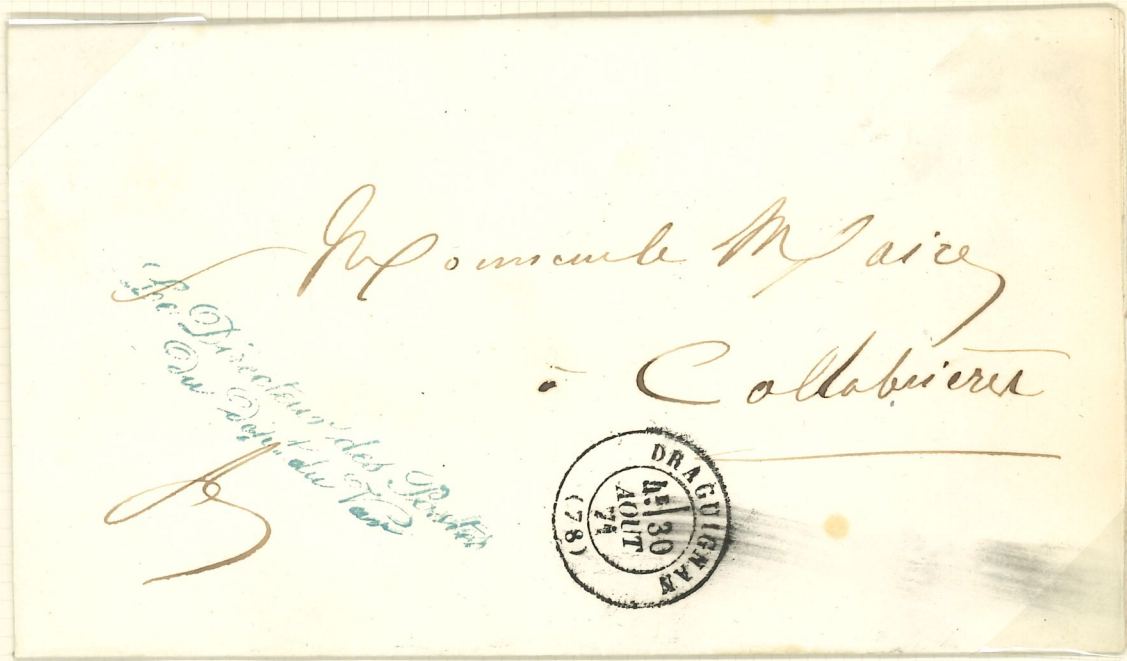 Monsieur le Maire
à Collobrières
Le Directeur des Postes
du Dépt. du Var
DRAGUIGNAN
30
AOUT
74
(78)